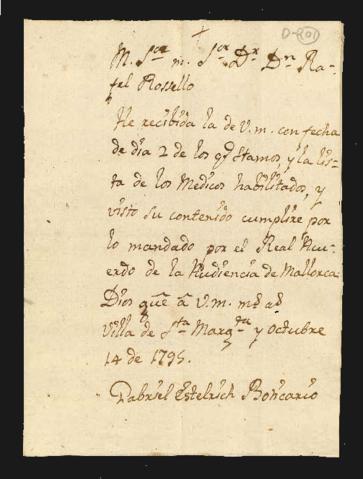 D-201
M. Sor. m. Sor. Dr. Dn. Ra-
fel Rossello
He recibida la de V.m. con fecha
de dia 2 de los qe. stamos, y la lis-
ta de los Medicos habilitados, y
visto su contenido cumpliré por
lo mandado por el Real Acu-
erdo de la Audiencia de Mallorca
Dios gue. â V.m. ms. as.
Villa de Sta. Margta. y Octubre
14 de 1795.
Gabriel Estelrich Boticario